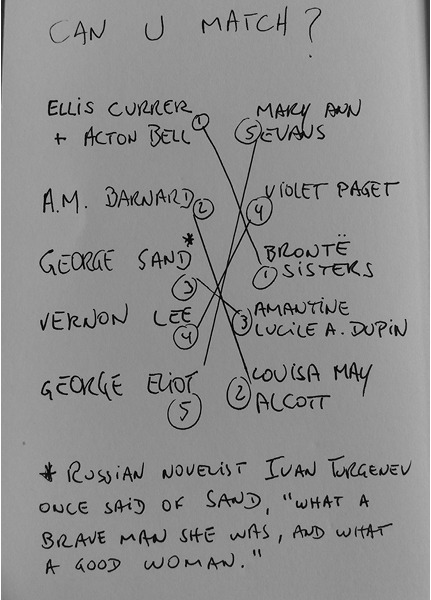 CAN U MATCH?
ELLIS CURRER
+ ACTON BELL ①
A.M. BARNARD ②
GEORGE SAND *
③
VERNON LEE
④
GEORGE ELIOT
⑤
MARY ANN
⑤ EVANS
VIOLET PAGET
④
BRONTË
① SISTERS
AMANTINE
③ LUCILE A. DUPIN
LOUISA MAY
② ALCOTT
* RUSSIAN NOVELIST IVAN TURGENEV
ONCE SAID OF SAND, "WHAT A
BRAVE MAN SHE WAS, AND WHAT
A GOOD WOMAN."